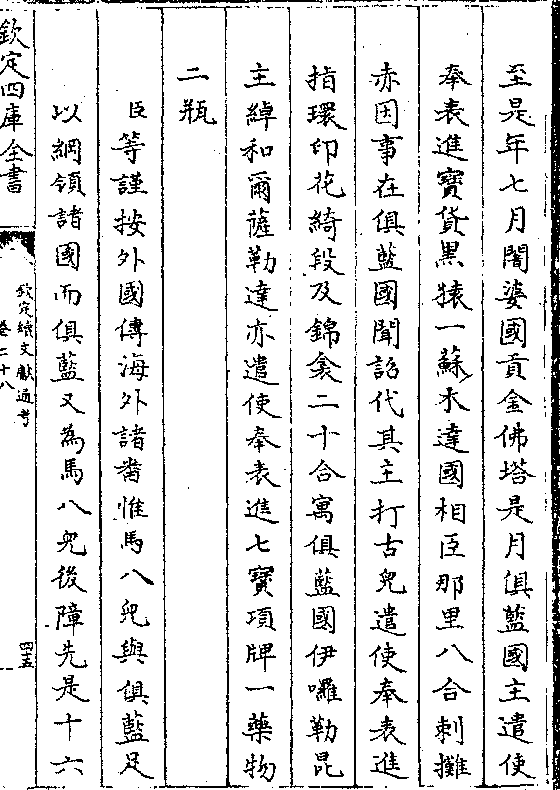 至是年七月闍婆國貢金佛塔是月俱藍國主遣使
奉表進寶貨黒猿一蘇木達國相臣那里八合刺攤
赤因事在俱藍國聞詔代其主打古兒遣使奉表進
指環印花綺段及錦衾二十合寓俱藍國伊囉勒昆
主綽和爾薩勒達亦遣使奉表進七寳項牌一藥物
二瓶
臣等謹按外國傳海外諸蕃惟馬八兒與俱藍足
以綱領諸國而俱藍又為馬八兒後障先是十六
欽定四庫全書
欽定續文獻通考
卷二十八
四五